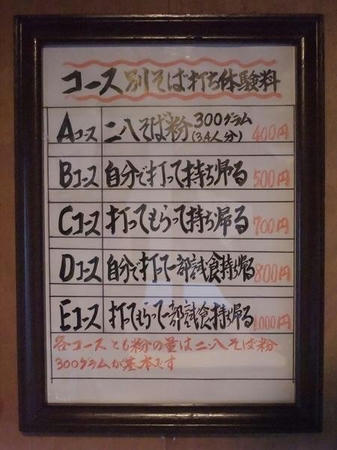 コース別そば打ち体験料
Aコース 二八そば粉 300グラム (3.4人分) 400円
Bコース 自分で打って持ち帰る 500円
Cコース 打ってもらって持ち帰る 700円
Dコース 自分で打って一部試食持ち帰る 800円
Eコース 打てもらって一部試食持ち帰る 1000円
各コースとも粉の量は二八そば粉
300グラムが基本です